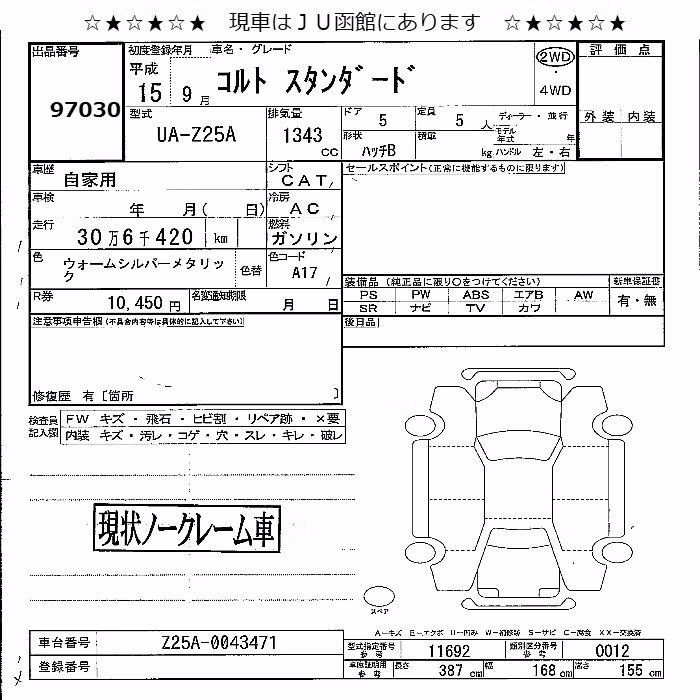 ☆★☆★☆★ 現車はＪＵ函館にあります ☆★☆★☆★
出品番号 初度登録年月 車名・グレード 評価点
97030 平成 15 9月 コルト スタンダード 2WD・4WD
型式 排気量 ドア 5 定員 5人 ディーラー・並行 外装 内装
UA-Z25A 1343 cc 形状 ハッチB 積載 kg モデル年式 年 ハンドル 左・右
車歴 自家用 シフト CAT セールスポイント(正常に機能するものに限ります)
車検 年 月( 日) 冷房 AC
走行 30万6千420 km 燃料 ガソリン
色 ウォームシルバーメタリック 色替 色コード A17
装備品(純正品に限り○をつけてください) 新車保証書
PS PW ABS エアB AW 有・無
SR ナビ TV カワ
R券 10,450円 名変通知期限 月 日
後日品
注意事項申告欄(不具合内容等は具体的に記入して下さい)
修復歴 有[箇所 ]
検査員記入欄 FW キズ・飛石・ヒビ割・リペア跡・×要
内装 キズ・汚レ・コゲ・穴・スレ・キレ・破レ
現状ノークレーム車
スペア
A-キズ E-エクボ U-凹み W-補修跡 S-サビ C-腐食 XX-交換済
車台番号 Z25A-0043471
型式指定番号 参考 11692 類別区分番号 参考 0012
登録番号
車庫証明用 参考 長さ 387 cm 幅 168 cm 高さ 155 cm